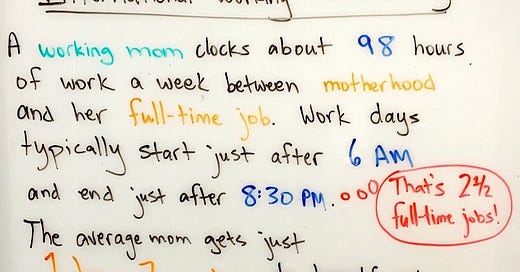 A working mom clocks about 98 hours
of work a week between motherhood
and her full-time job. Work days
typically start just after 6 AM
and end just after 8:30 PM.
That's 2 1/2
full-time jobs!
The average mom gets just